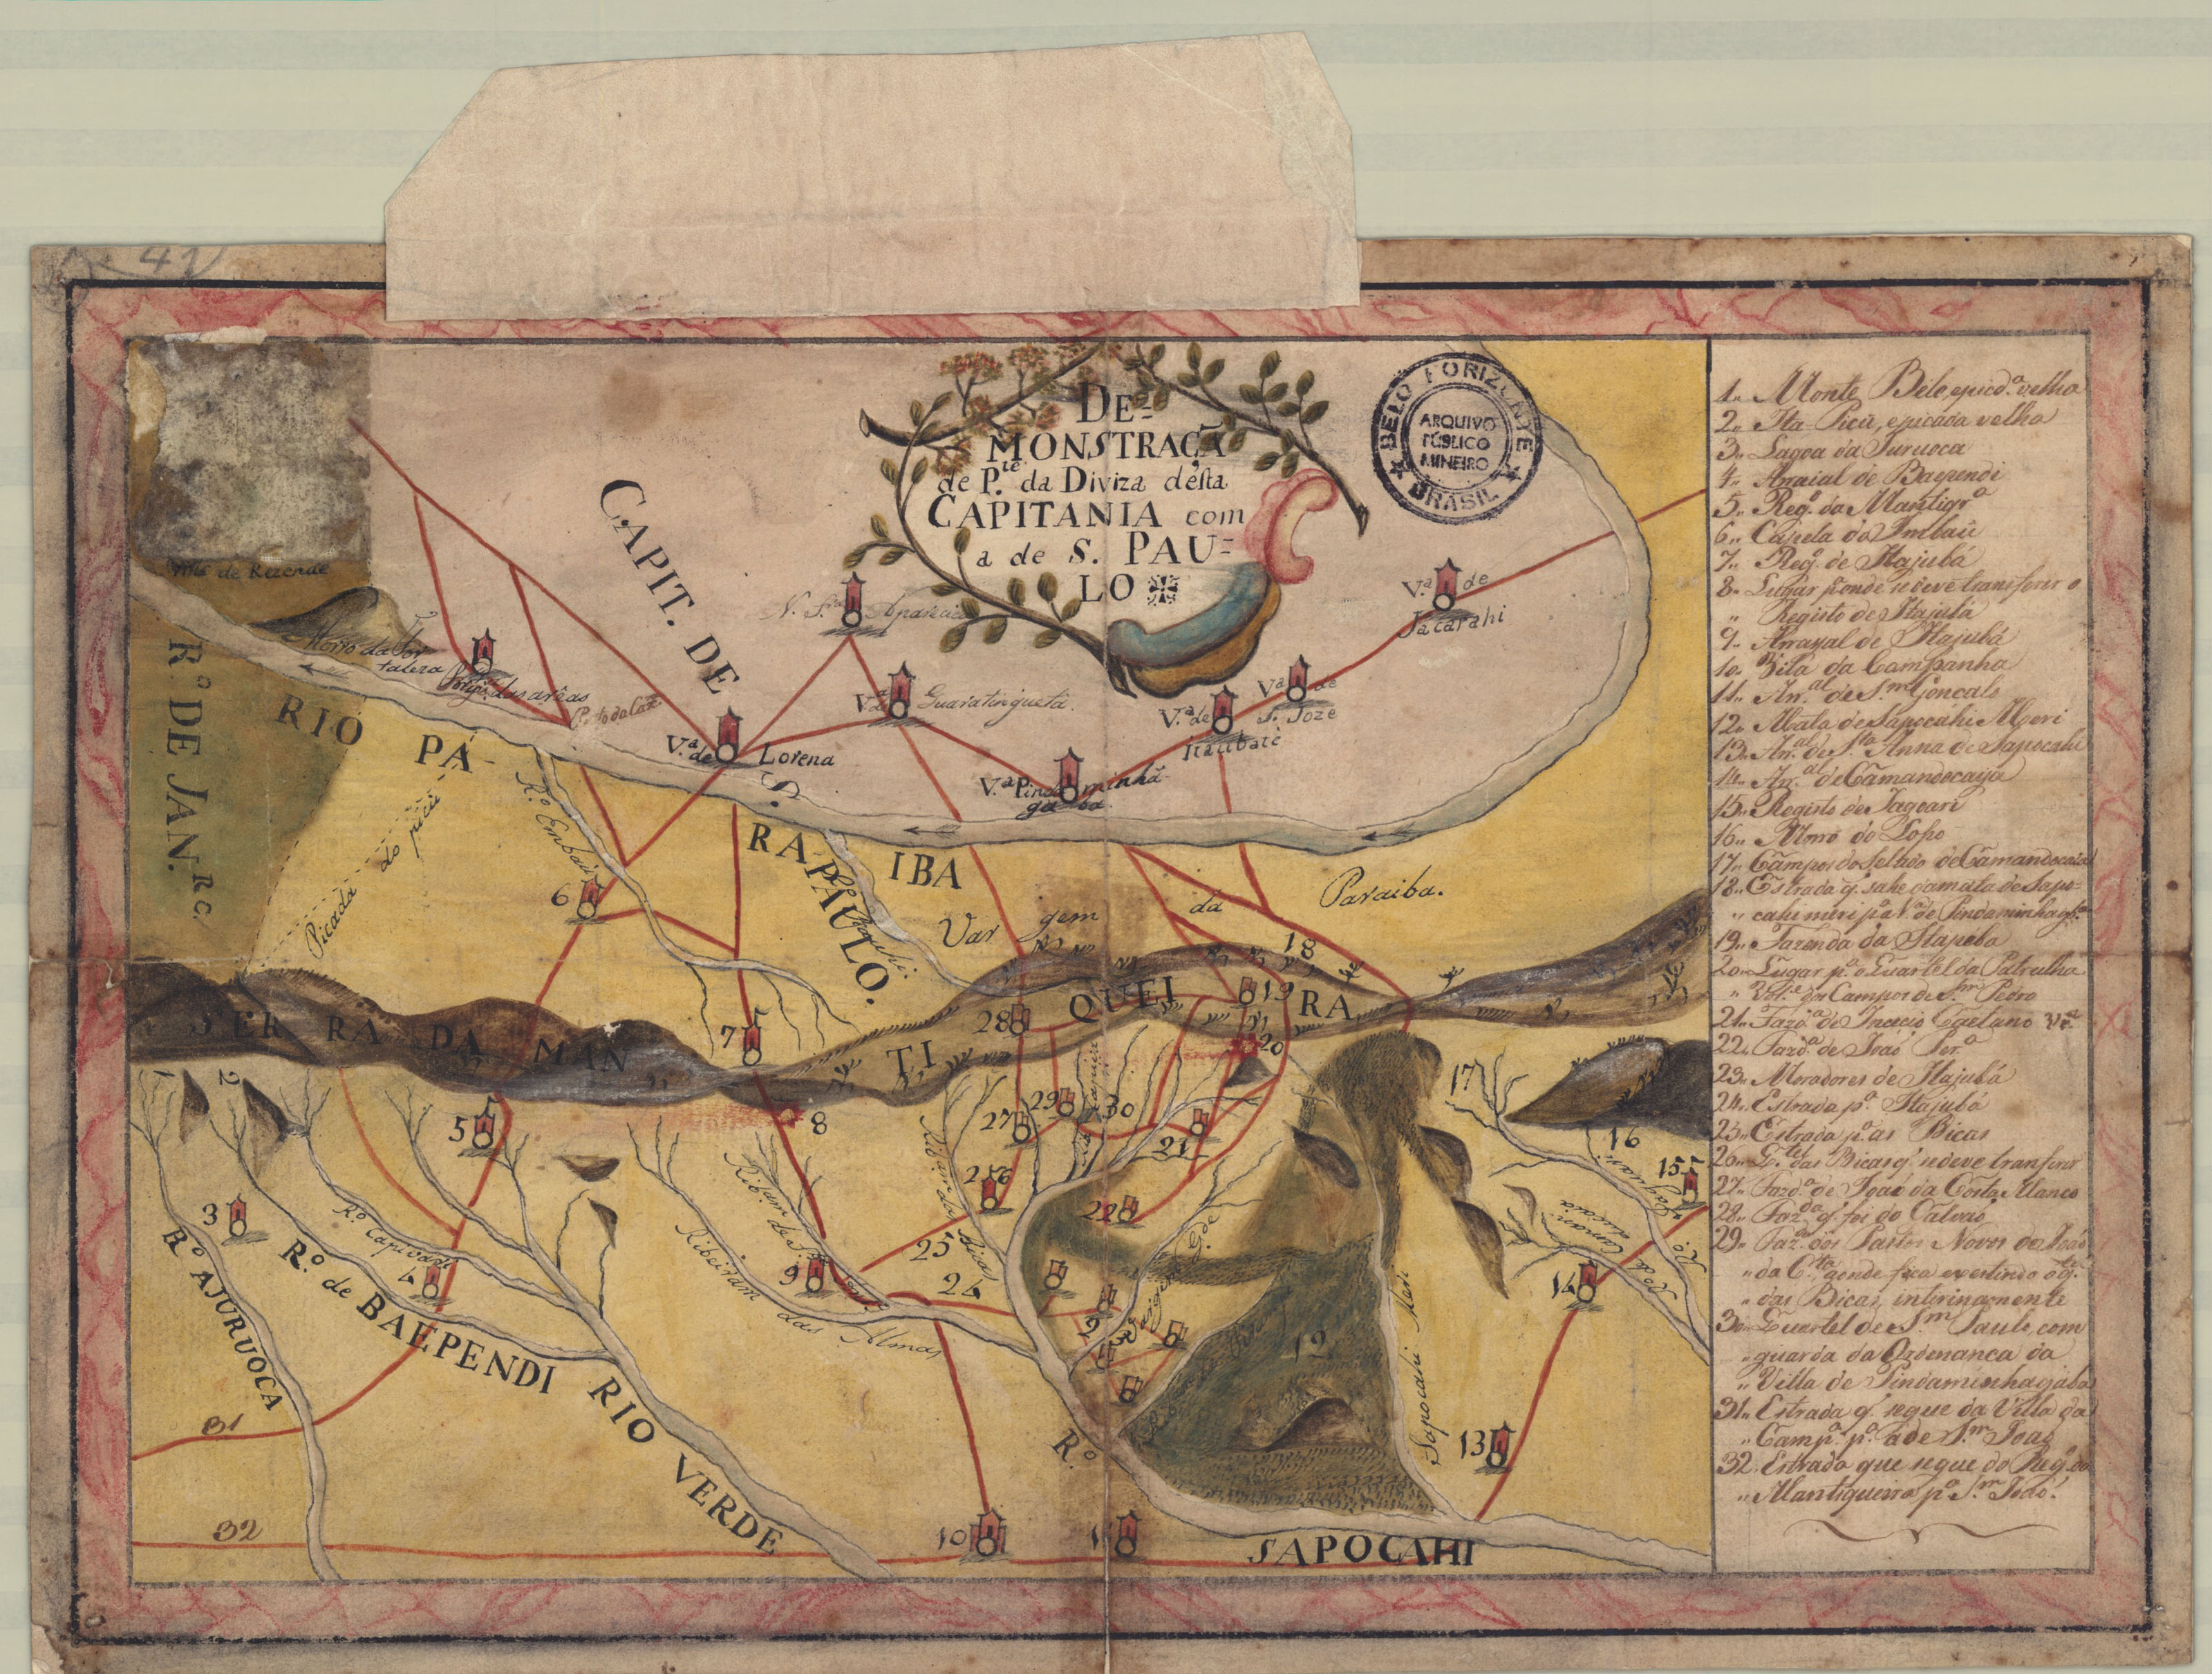 41
DE-
MONSTRAÇÃ
de P.te da Diviza désta
CAPITANIA com
a de S. PAU-
LO
BELO HORIZONTE
ARQUIVO
PÚBLICO
MINEIRO
BRASIL
CAPIT. DE
S. PAULO.
Villa de Rezende
Morro da For
taleza
das arêas
N. Sra Aparecida
V.a de
Jacarahi
V.a de
S. Joze
V.a de
Itaubatè
V.a Guaratinguetá.
V.a de Lorena
V.a Pindaminhá
gaba.
R.o DE JAN.RC.
RIO PA-
RA
IBA
Picada do picú
R.o Embaú
Var gem da Paraiba.
SER RA DA MAN
TI
QUEI
RA
1
2
3
4
5
6
7
8
9
10
12
13
14
15
16
17
18
19
20
21
22
24
25
26
27
28
29
30
31
32
R.o AJURUOCA
R.o de BAEPENDI
R.o Capivari
RIO VERDE
Ribeiram das Almas
Sapocahi Meri
R.o
SAPOCAHI
1.. Monte Belo, epicd.a velha
2.. Ita Picú, epicada velha
3.. Lagoa da Juruoca
4.. Arraial de Baependi
5.. Reg.o da Mantigr.a
6.. Capela do Imbaú
7.. Reg.o de Itajubá
8.. Lugar p.a onde se deve transferir o
" Registo de Itajubá
9.. Arrayal de Itajubá
10.. Vila da Campanha
11.. Ar.al de S.m Gonçalo
12.. Mata de Sapocahi Meri
13.. Ar.al de S.ta Anna de Sapocahi
14.. Ar.al de Camandocaya
15.. Registo de Jagoari
16.. Morro do Lopo
17.. Campos do Selado de Camandocaia
18.. Estrada q. sahe da mata de Sapo-
" cahi meri p.a V.a de Pindaminhag.a
19.. Fazenda da Itapeba
20.. Lugar p.a o Quartel da Patrulha
" dos Campos de S.m Pedro
21.. Fazd.a de Inacio Caetano Vr.a
22.. Fazd.a de Joaó Fer.a
23.. Moradores de Itajubá
24.. Estrada p.a Itajubá
25.. Estrada p.a as Bicas
26.. Q.tel das Bicas q. se deve tranferir
27.. Fazd.a de Joaó da Costa Manco
28.. Fazd.a q. foi do Calvaó
29.. Faz.a dos Pastos Novos de Joaó
" da C.ta aonde fica existindo o q.tel
" das Bicas, interinamente
30.. Quartel de S.m Paulo, com
" guarda da Ordenanca da
" Villa de Pindaminhagaba
31.. Estrada q. segue da Villa da
" Camp.a p.a a de S.m Joaó
32.. Estrada que segue do Reg.o da
" Mantiqueira p.a S.m Joaó.